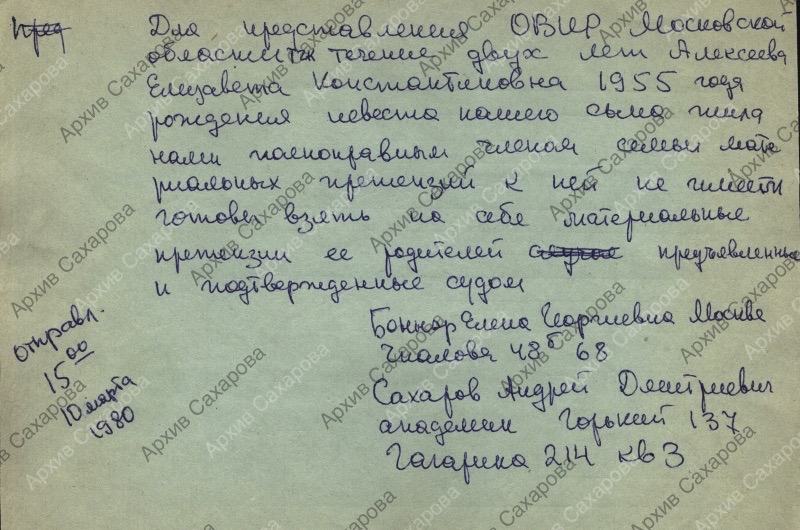 пред
Для представления ОВИР Московской
области течение двух лет Алексеева
Елизавета Константиновна 1955 года
рождения невеста нашего сына жила
нами полноправным членом семьи мате
риальных претензий к ней не имеем
готовы взять на себе материальные
претензии ее родителей предъявленные
и подтвержденные судом
Боннэр Елена Георгиевна Москва
Чкалова 48б 68
Сахаров Андрей Дмитриевич
академик Горький 137
Гагарина 214 кв 3
отправл.
15 00
10 марта
1980
Архив Сахарова